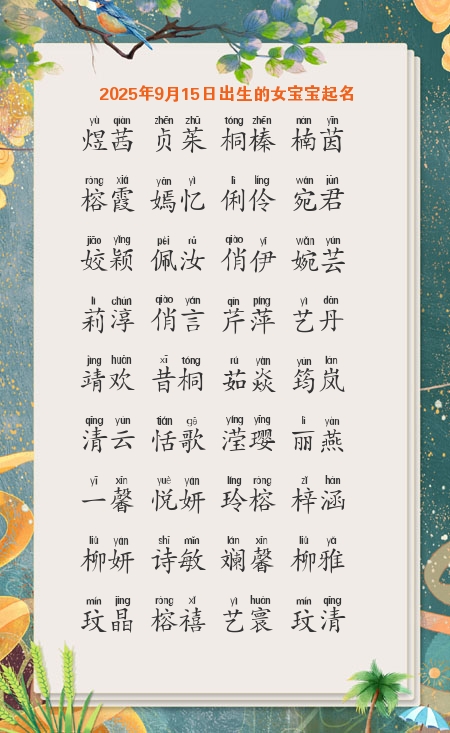 2025年9月15日出生的女宝宝起名
yù qiàn zhēn zhū tóng zhēn nán yīn
煜茜 贞茱 桐榛 楠茵
róng xiá yān yì lì líng wǎn jūn
榕霞 嫣忆 俐伶 宛君
jiāo yǐng pèi rǔ qiào yī wǎn yún
姣颖 佩汝 俏伊 婉芸
lì chún qiào yán qín píng yì dān
莉淳 俏言 芹萍 艺丹
jìng huān xī tóng rú yàn yún lán
靖欢 昔桐 茹焱 筠岚
qīng yún tián gē yíng yīng lì yàn
清云 恬歌 滢璎 丽燕
yī xīn yuè yán líng róng zǐ hán
一馨 悦妍 玲榕 梓涵
liǔ yán shī mǐn lán xīn liǔ yǎ
柳妍 诗敏 斓馨 柳雅
mín jīng róng xǐ yì huán mín qīng
玟晶 榕禧 艺寰 玟清